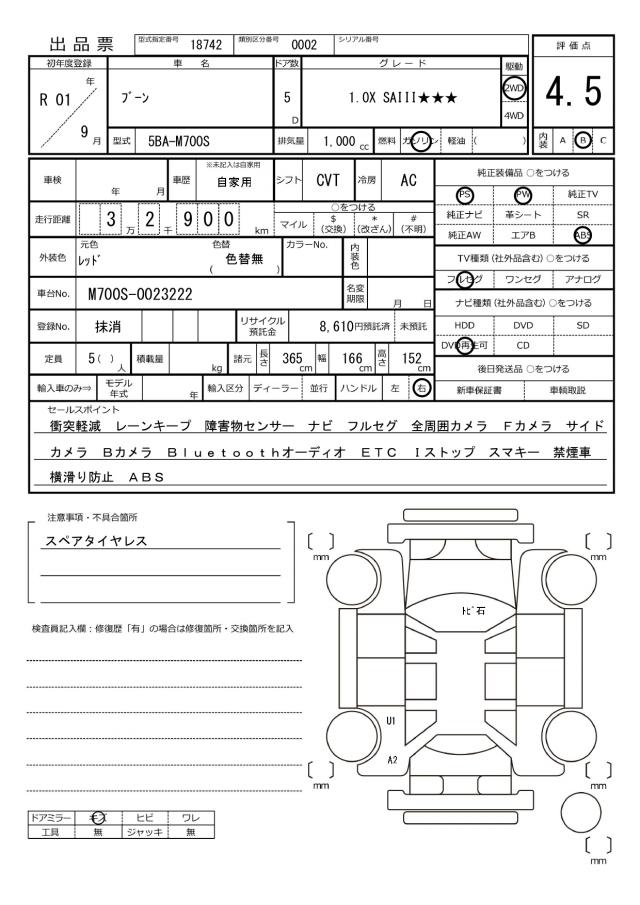 出品票 型式指定番号 18742 類別区分番号 0002 シリアル番号
評価点
初年度登録 車名 ドア数 グレード 駆動
R 01 年 9 月 ブーン 5 D 1.0X SAIII★★★ 2WD 4WD
4.5
型式 5BA-M700S 排気量 1,000 cc 燃料 ガソリン 軽油 ( )
内装 A B C
車検 年 月 車歴 ※未記入は自家用 自家用 シフト CVT 冷房 AC
純正装備品 ○をつける
PS PW 純正TV
純正ナビ 革シート SR
純正AW エアB ABS
走行距離 3 万 2 千 9 0 0 km
○をつける
マイル $(交換) *(改ざん) #(不明)
外装色 元色 レッド 色替 ( 色替無 ) カラーNo. 内装色
TV種類 (社外品含む) ○をつける
フルセグ ワンセグ アナログ
車台No. M700S-0023222 名変期限 月 日
ナビ種類 (社外品含む) ○をつける
HDD DVD SD
DVD再生可 CD
登録No. 抹消 リサイクル預託金 8,610円預託済 未預託
定員 5 ( ) 人 積載量 kg 諸元 長さ 365 cm 幅 166 cm 高さ 152 cm
後日発送品 ○をつける
新車保証書 車輌取説
輸入車のみ⇒ モデル年式 年 輸入区分 ディーラー 並行 ハンドル 左 右
セールスポイント
衝突軽減 レーンキープ 障害物センサー ナビ フルセグ 全周囲カメラ Fカメラ サイド
カメラ Bカメラ Bluetoothオーディオ ETC Iストップ スマキー 禁煙車
横滑り防止 ABS
注意事項・不具合箇所
スペアタイヤレス
検査員記入欄：修復歴「有」の場合は修復箇所・交換箇所を記入
〔 〕mm
〔 〕mm
トビ石
U1
A2
〔 〕mm
〔 〕mm
〔 〕mm
ドアミラー キズ ヒビ ワレ
工具 無 ジャッキ 無